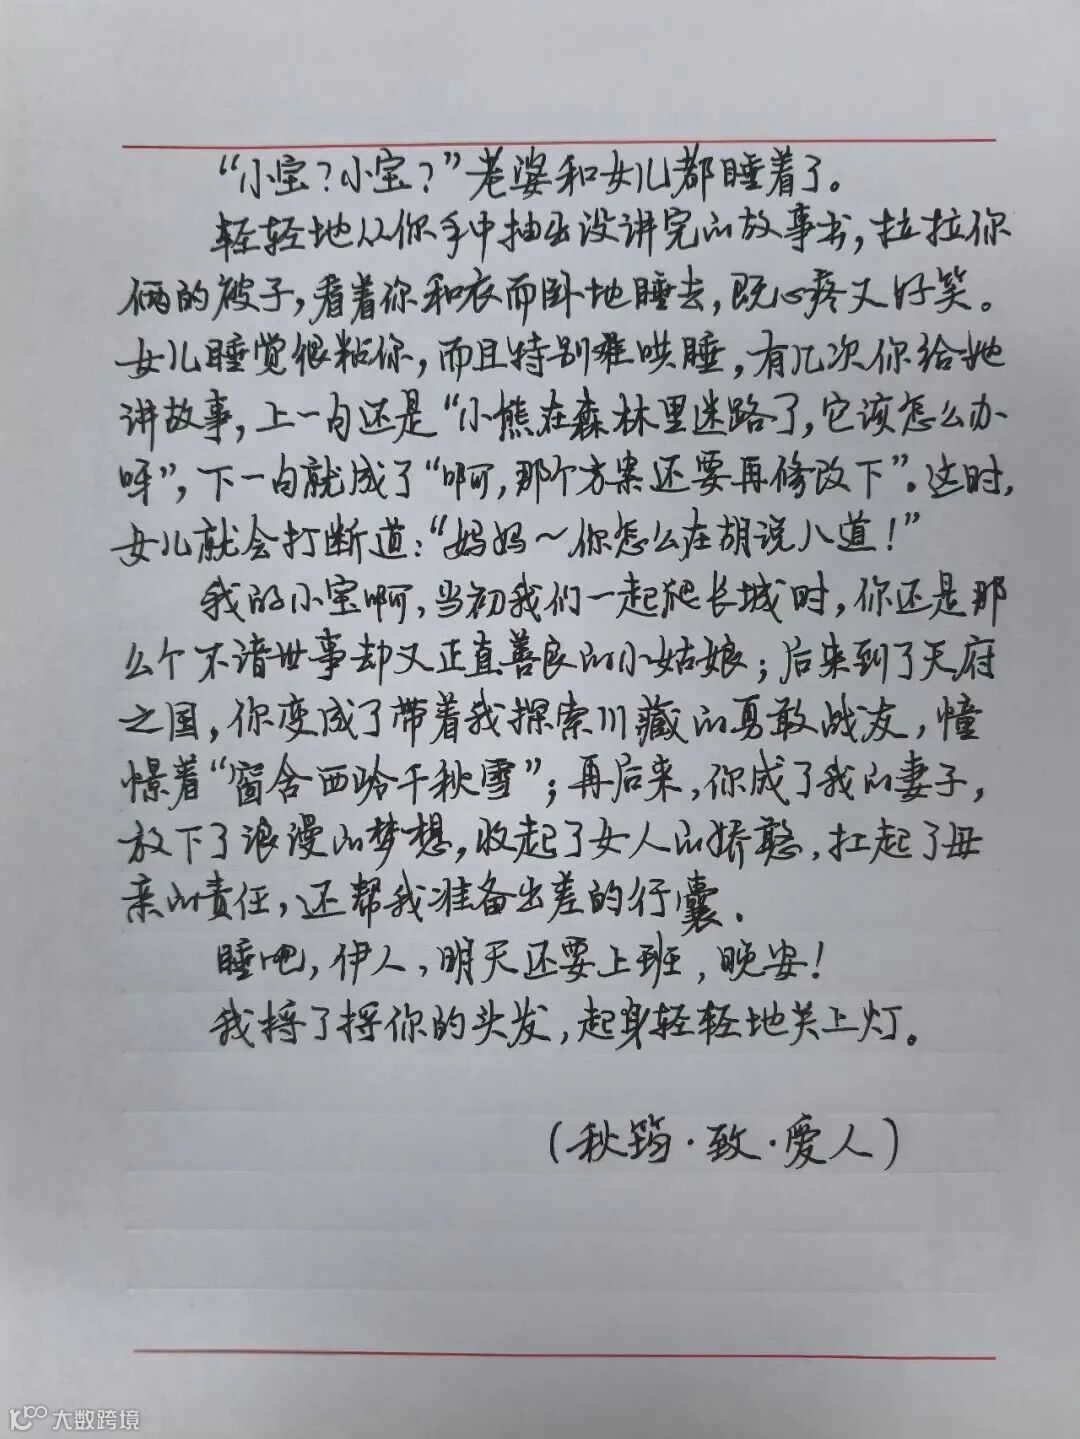 “小宝？小宝？”老婆和女儿都睡着了。
轻轻地从你手中抽出没讲完的故事书，拉拉你
俩的被子，看着你和衣而卧地睡去，既心疼又好笑。
女儿睡觉很粘你，而且特别难哄睡，有几次你给她
讲故事，上一句还是“小熊在森林里迷路了，它该怎么办
呀”，下一句就成了“啊，那个方案还要再修改下”。这时，
女儿就会打断道：“妈妈～你怎么在胡说八道！”
我的小宝啊，当初我们一起爬长城时，你还是那
么个不谙世事却又正直善良的小姑娘；后来到了天府
之国，你变成了带着我探索川藏的勇敢战友，憧
憬着“窗含西岭千秋雪”；再后来，你成了我的妻子，
放下了浪漫的梦想，收起了女人的娇憨，扛起了母
亲的责任，还帮我准备出差的行囊.
睡吧，伊人，明天还要上班，晚安！
我捋了捋你的头发，起身轻轻地关上灯。
（秋筠·致·爱人）
大数跨境